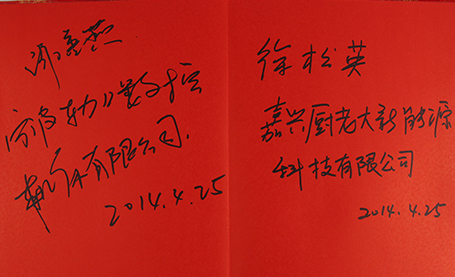 宁波力数控
有限公司.
2014.4.25
徐松英
嘉兴厨老大新能源
科技有限公司
2014.4.25